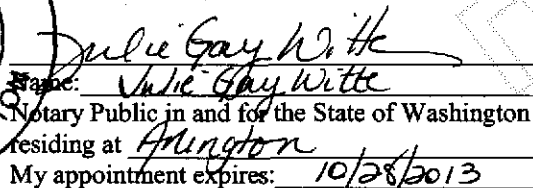 Julie Gay Witte
Name: Julie Gay Witte
Notary Public in and for the State of Washington
residing at Arlington
My appointment expires: 10/28/2013